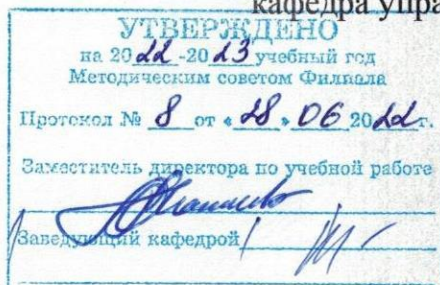 кафедра упра
УТВЕРЖДЕНО
на 2022-2023 учебный год
Методическим советом Филиала
Протокол № 8 от «28» 06 2022г.
Заместитель директора по учебной работе
Заведующий кафедрой